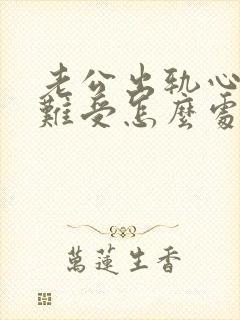 老公出轨心
難受怎麼處
萬蓮生香